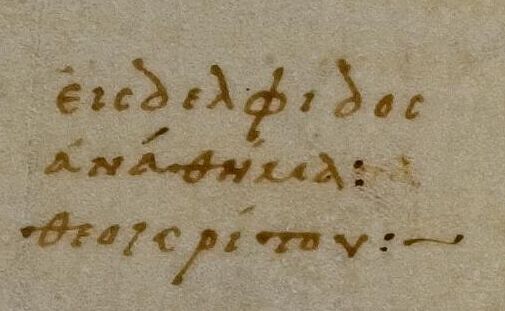 ἐις δελφιδος
ἀνάθημα:
θεοκρίτου:~